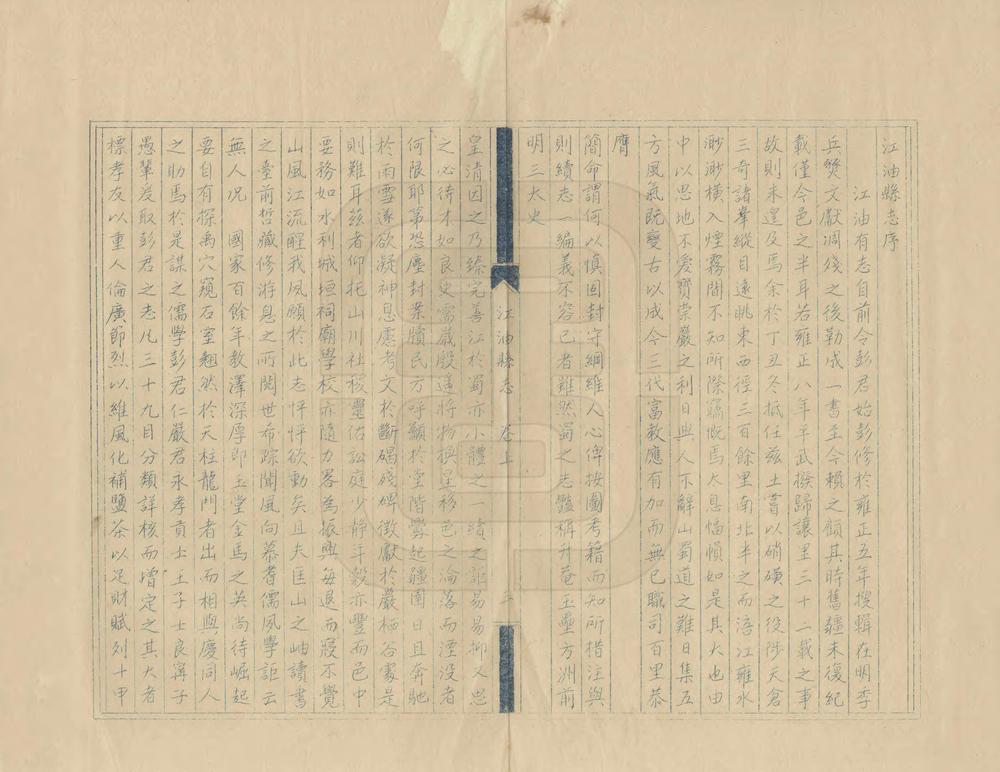 江油縣志序
江油有志自前令彭君始彭修於雍正五年搜輯在明季
兵燹文獻凋殘之後勒成一書至今賴之顧其時舊疆未復紀
載僅今邑之半耳若雍正八年平武撥歸讓里三十二載之事
故則未遑及焉余於丁丑冬抵任茲土嘗以硝磺之役陟天倉
三奇諸峯縱目遠眺東西徑三百餘里南北半之而涪江雍水
渺渺橫入煙霧間不知所際竊慨焉太息愊愩如是其大也由
中以思地不愛寶崇嚴之利日與人不解山蜀道之難日集五
方風氣旣變古以成今三代富教應有加而無已職司百里恭
膺
簡命謂何以慎固封守綱維人心俾按圖考籍而知所措注與
則續志一編義不容已者雖然蜀之志豔稱升菴玉壘方洲前
明三太史
江油縣志 卷上 三
皇清因之乃臻完善江於蜀亦小體之一續之詎易易抑又思
之必待才如良史需歲殷遙將物換星移邑之淪落而湮沒者
何限耶第恐塵封案牘民方呼籲於堂階釁起疆圉日且奔馳
於雨雪遂欲凝神息慮考文於斷碣殘碑徵獻於巖栖谷處是
則難耳茲者仰托山川社稷靈佑訟庭少靜年穀亦豐而邑中
要務如水利城垣祠廟學校亦隨力畧為振興每退而寢不覺
山風江流醒我夙願於此志怦怦欲動矣且夫匡山之岫讀書
之臺前哲藏修游息之所閱世希踪聞風向慕者儒風學詎云
無人况 國家百餘年教澤深厚即玉堂金馬之英尚待崛起
要自有探禹穴窺石室翹然於天柱龍門者出而相與慶同人
之助焉於是謀之儒學彭君仁嚴君永孝貢士王子士良甯子
愚輩爰取彭君之志凡三十九目分類詳核而增定之其大者
標孝友以重人倫廣節烈以維風化補鹽茶以足財賦列十甲